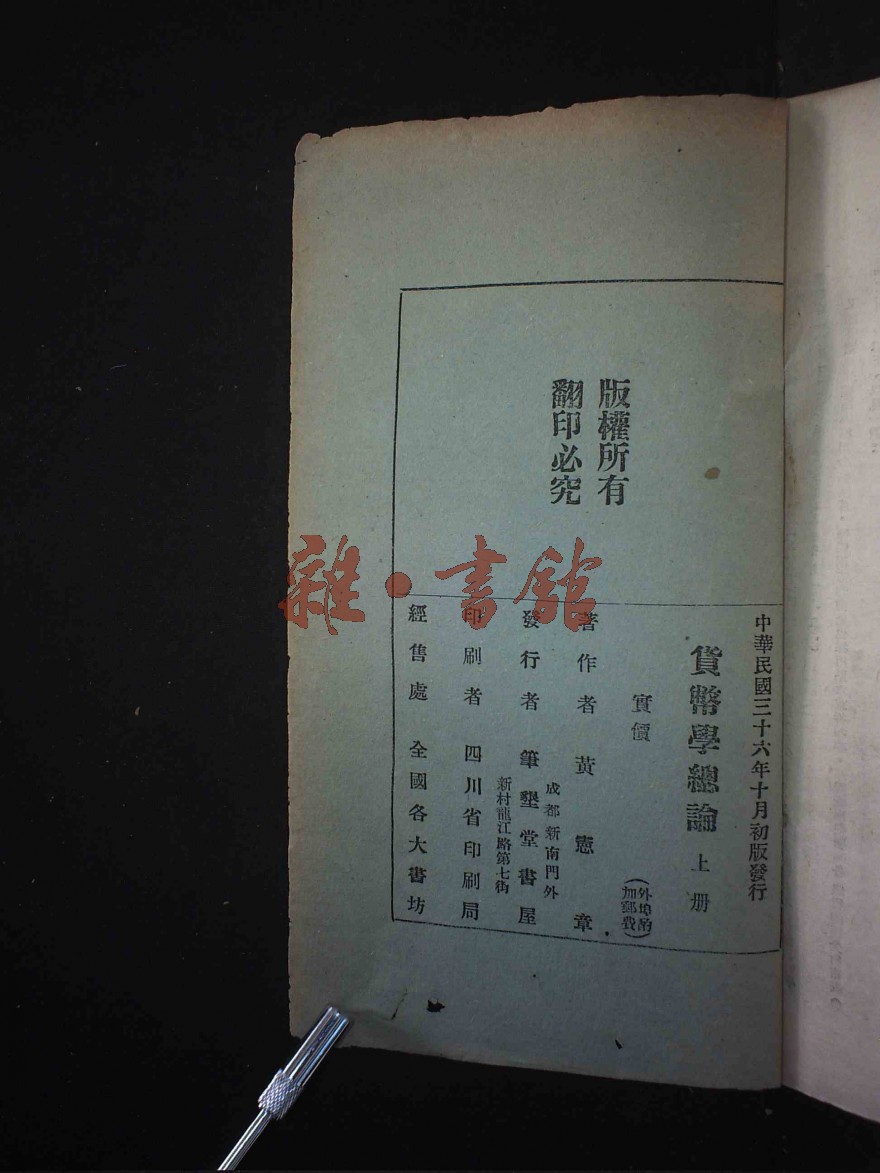 版權所有
翻印必究
中華民國三十六年十月初版發行
貨幣學總論 上册
實價
(外埠酌加郵費)
著作者 黃憲章
發行者 筆墾堂書屋
成都新南門外
新村龍江路第七街
印刷者 四川省印刷局
經售處 全國各大書坊
雜·書館